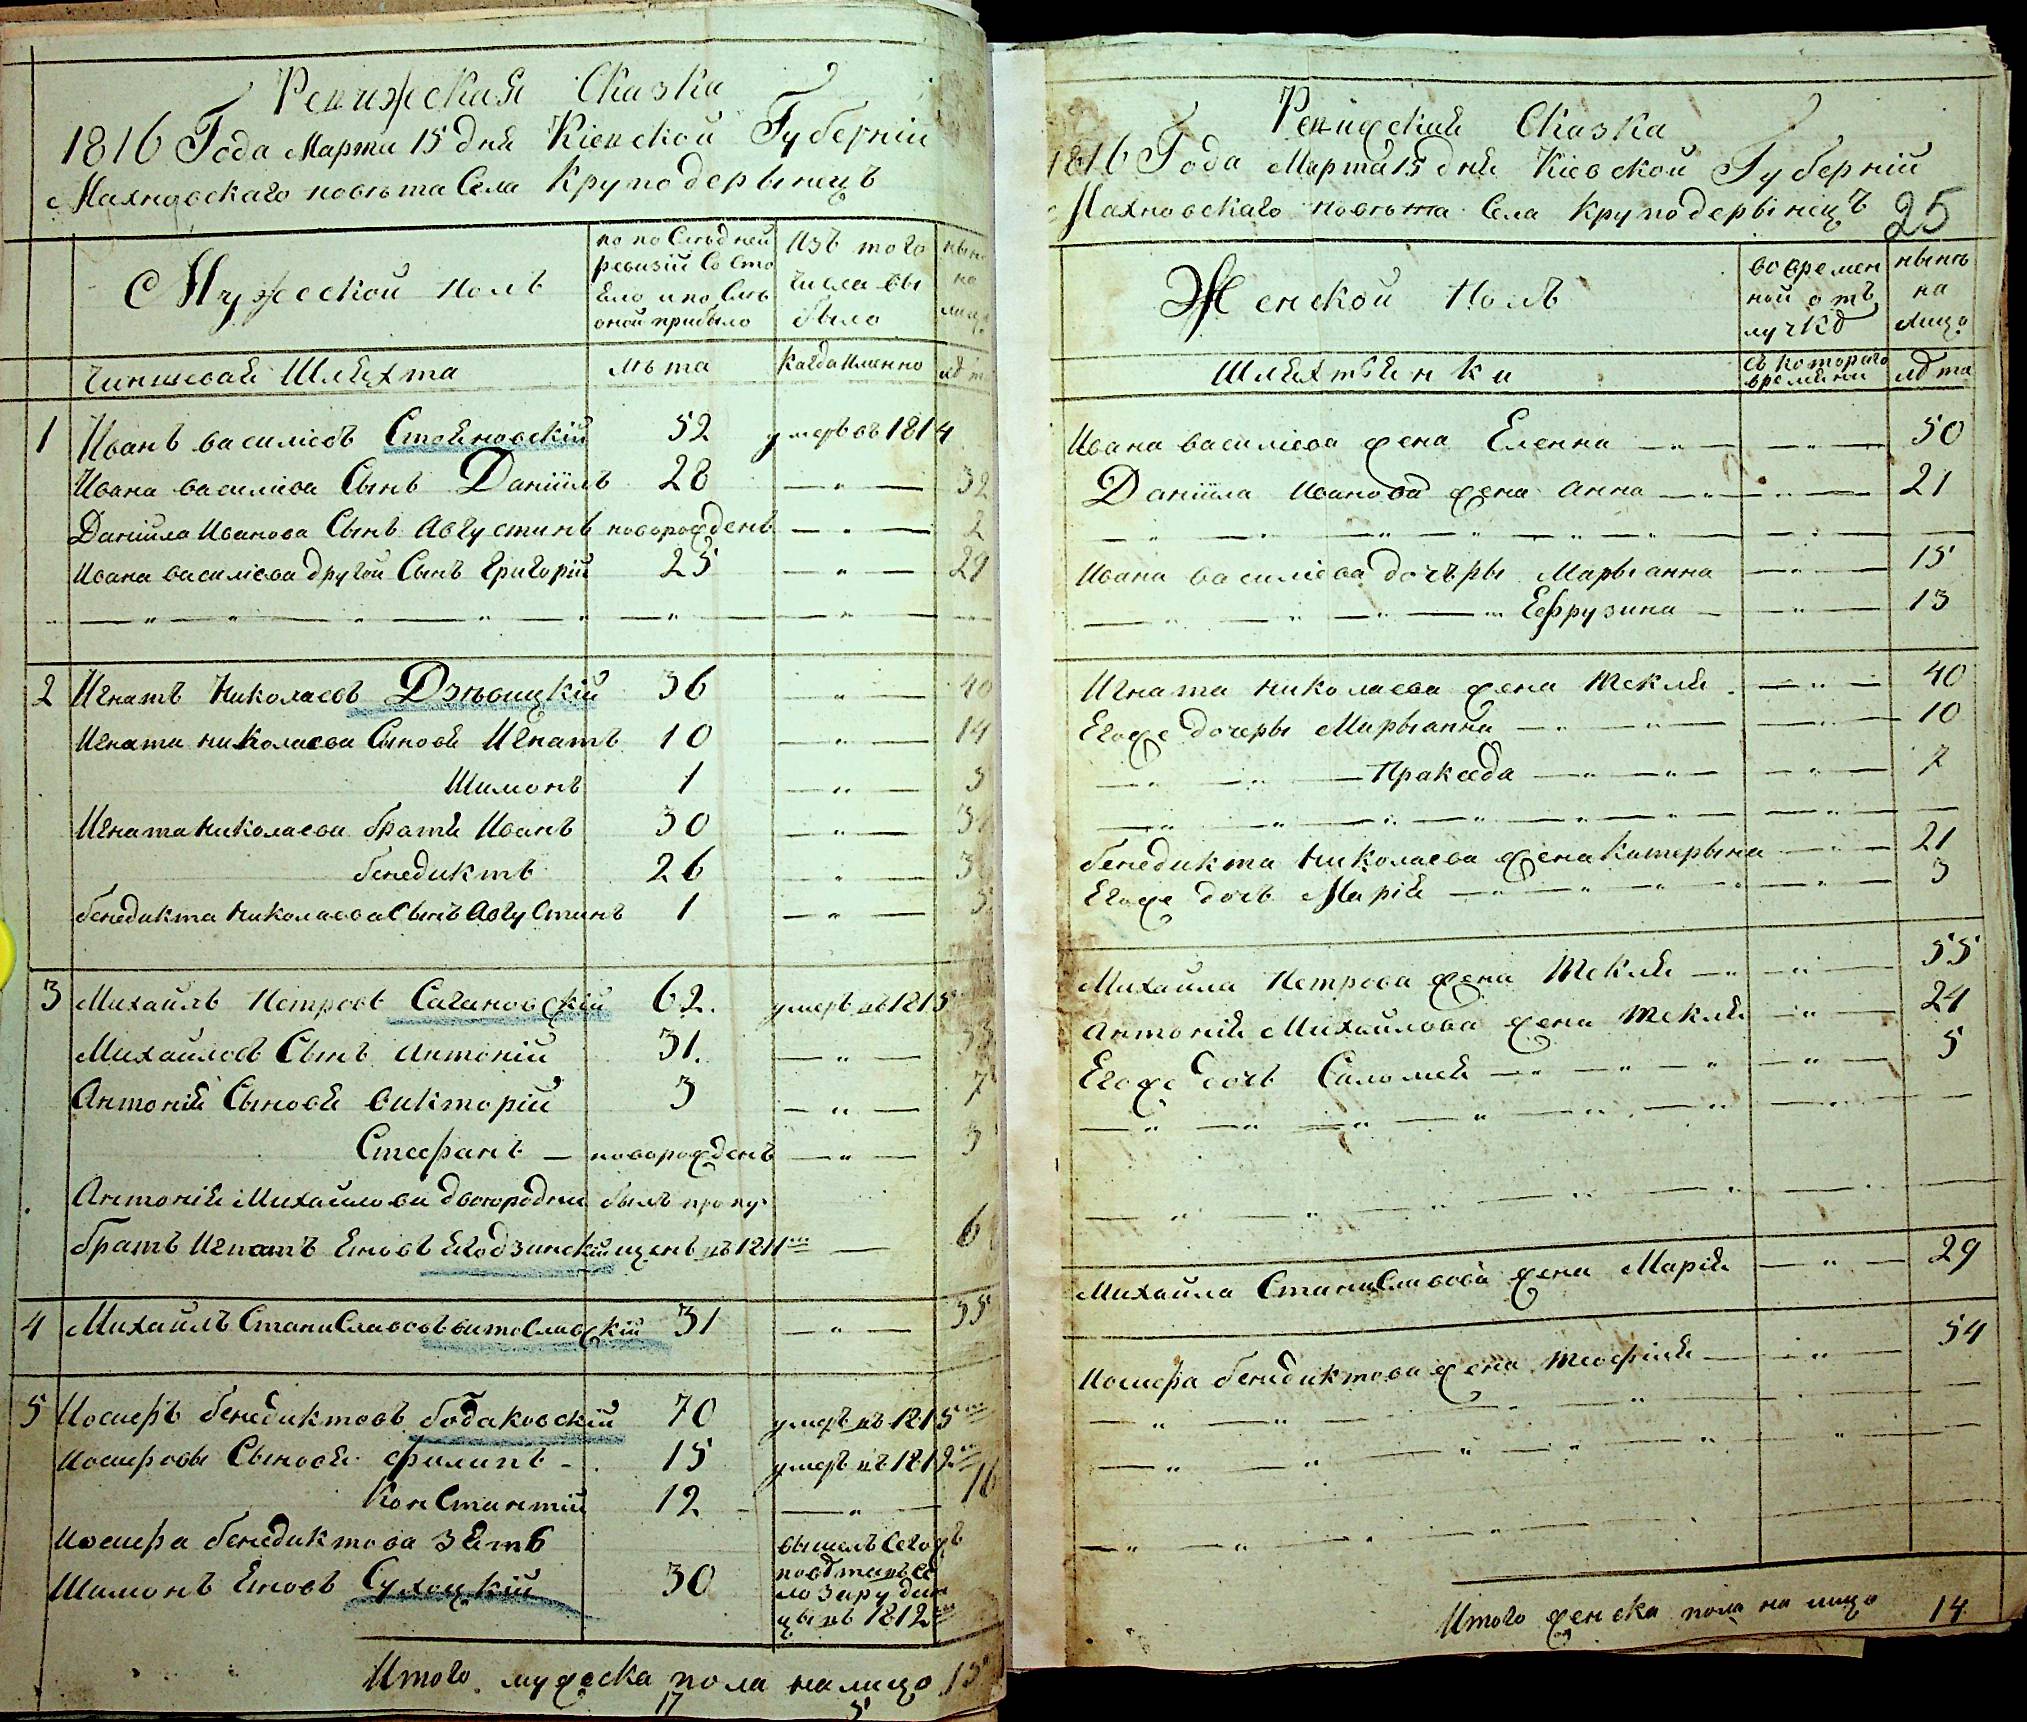 Ревижская Сказка
1816 Года Марта 15 дня Кіевской Губерніи
Махновскаго повѣта Села Круподерынецъ
Мужеской полъ
по поСлѣдней ревизіи Состо
яло и поСлѣ
оной прибыло
Изъ того
числа вы
было
нынѣ
на
лицо
Чиншевая Шляхта
лѣта
Когда именно
лѣта
1 Иванъ василіевъ Стояновскій 52 умеръ въ 1814
Ивана василіева Сынъ Даніилъ 28 — „ — 32
Даніила Иванова Сынъ Августинъ новорожденъ — „ — 2
Ивана василіева другой Сынъ Григорій 25 — „ — 29
2 Игнатъ Николаевъ Дзѣвицкій 36 — „ — 40
Игната николаева Сыновя Игнатъ 10 — „ — 14
Шимонъ 1 — „ — 5
Игната Николаева братя Иванъ 30 — „ —
бенедиктъ 26 — „ —
бенедикта Николаева Сынъ АвгуСтинъ 1 — „ — 5
3 Михайлъ Петровъ Сагановскій 62. умеръ въ 1815
Михайловъ Сынъ Антоній 31. — „ — 35
Антонія Сыновя викторій 3 — „ — 7
Стефанъ — новорожденъ — „ — 3
Антонія Михайлова двоюродни былъ пропу
братъ Игнатъ Яновъ Ягодзинскій щенъ въ 1811 — 6
4 Михайлъ СтаниСлавовъ витоСлавскій 31 — „ — 35
5 Иосифъ бенедиктовъ бодаковскій 70 умеръ въ 1815
Иосифовы Сыновя филипъ - 15 умеръ въ 1812
КонСтантій 12 — „ — 16
Иосифа бенедиктова зять
Шимонъ Яновъ Сулоцкій 30
вышелъ Сегожъ
повѣта въ Се
ло Зарудин
цы въ 1812
Итого мужеска пола налицо 15
17 5
Ревижская Сказка
1816 Года Марта 15 дня Кіевской Губерній
Махновскаго повѣта Села Круподерынецъ 25
Женской полъ
во времен
ной отъ
лучкѣ
нынѣ
на
лицо
Шляхтянки
съ котораго
времени
лѣта
Ивана василіева жена Еленна — „ — 50
Даніила Иванова жена Анна — „ — 21
Ивана василіева дочъры Марыанна — „ — 15
Ефрузина — „ — 13
Игната николаева жена Текля — „ — 40
Егоже дочеры Марыанна — „ — 10
Пракседа — „ — 7
бенедикта Николаева жена Катерына — „ — 21
Егоже дочъ Марія — „ — 3
Михаила Петрова жена Текля — „ — 55
Антонія Михайлова жена Текля — „ — 24
Егоже дочъ Саломея — „ — 5
Михаила СтаниСлавова жена Марія — „ — 29
Иосифа бенедиктова жена Теофиля — „ — 54
Итого женска пола на лицо 14